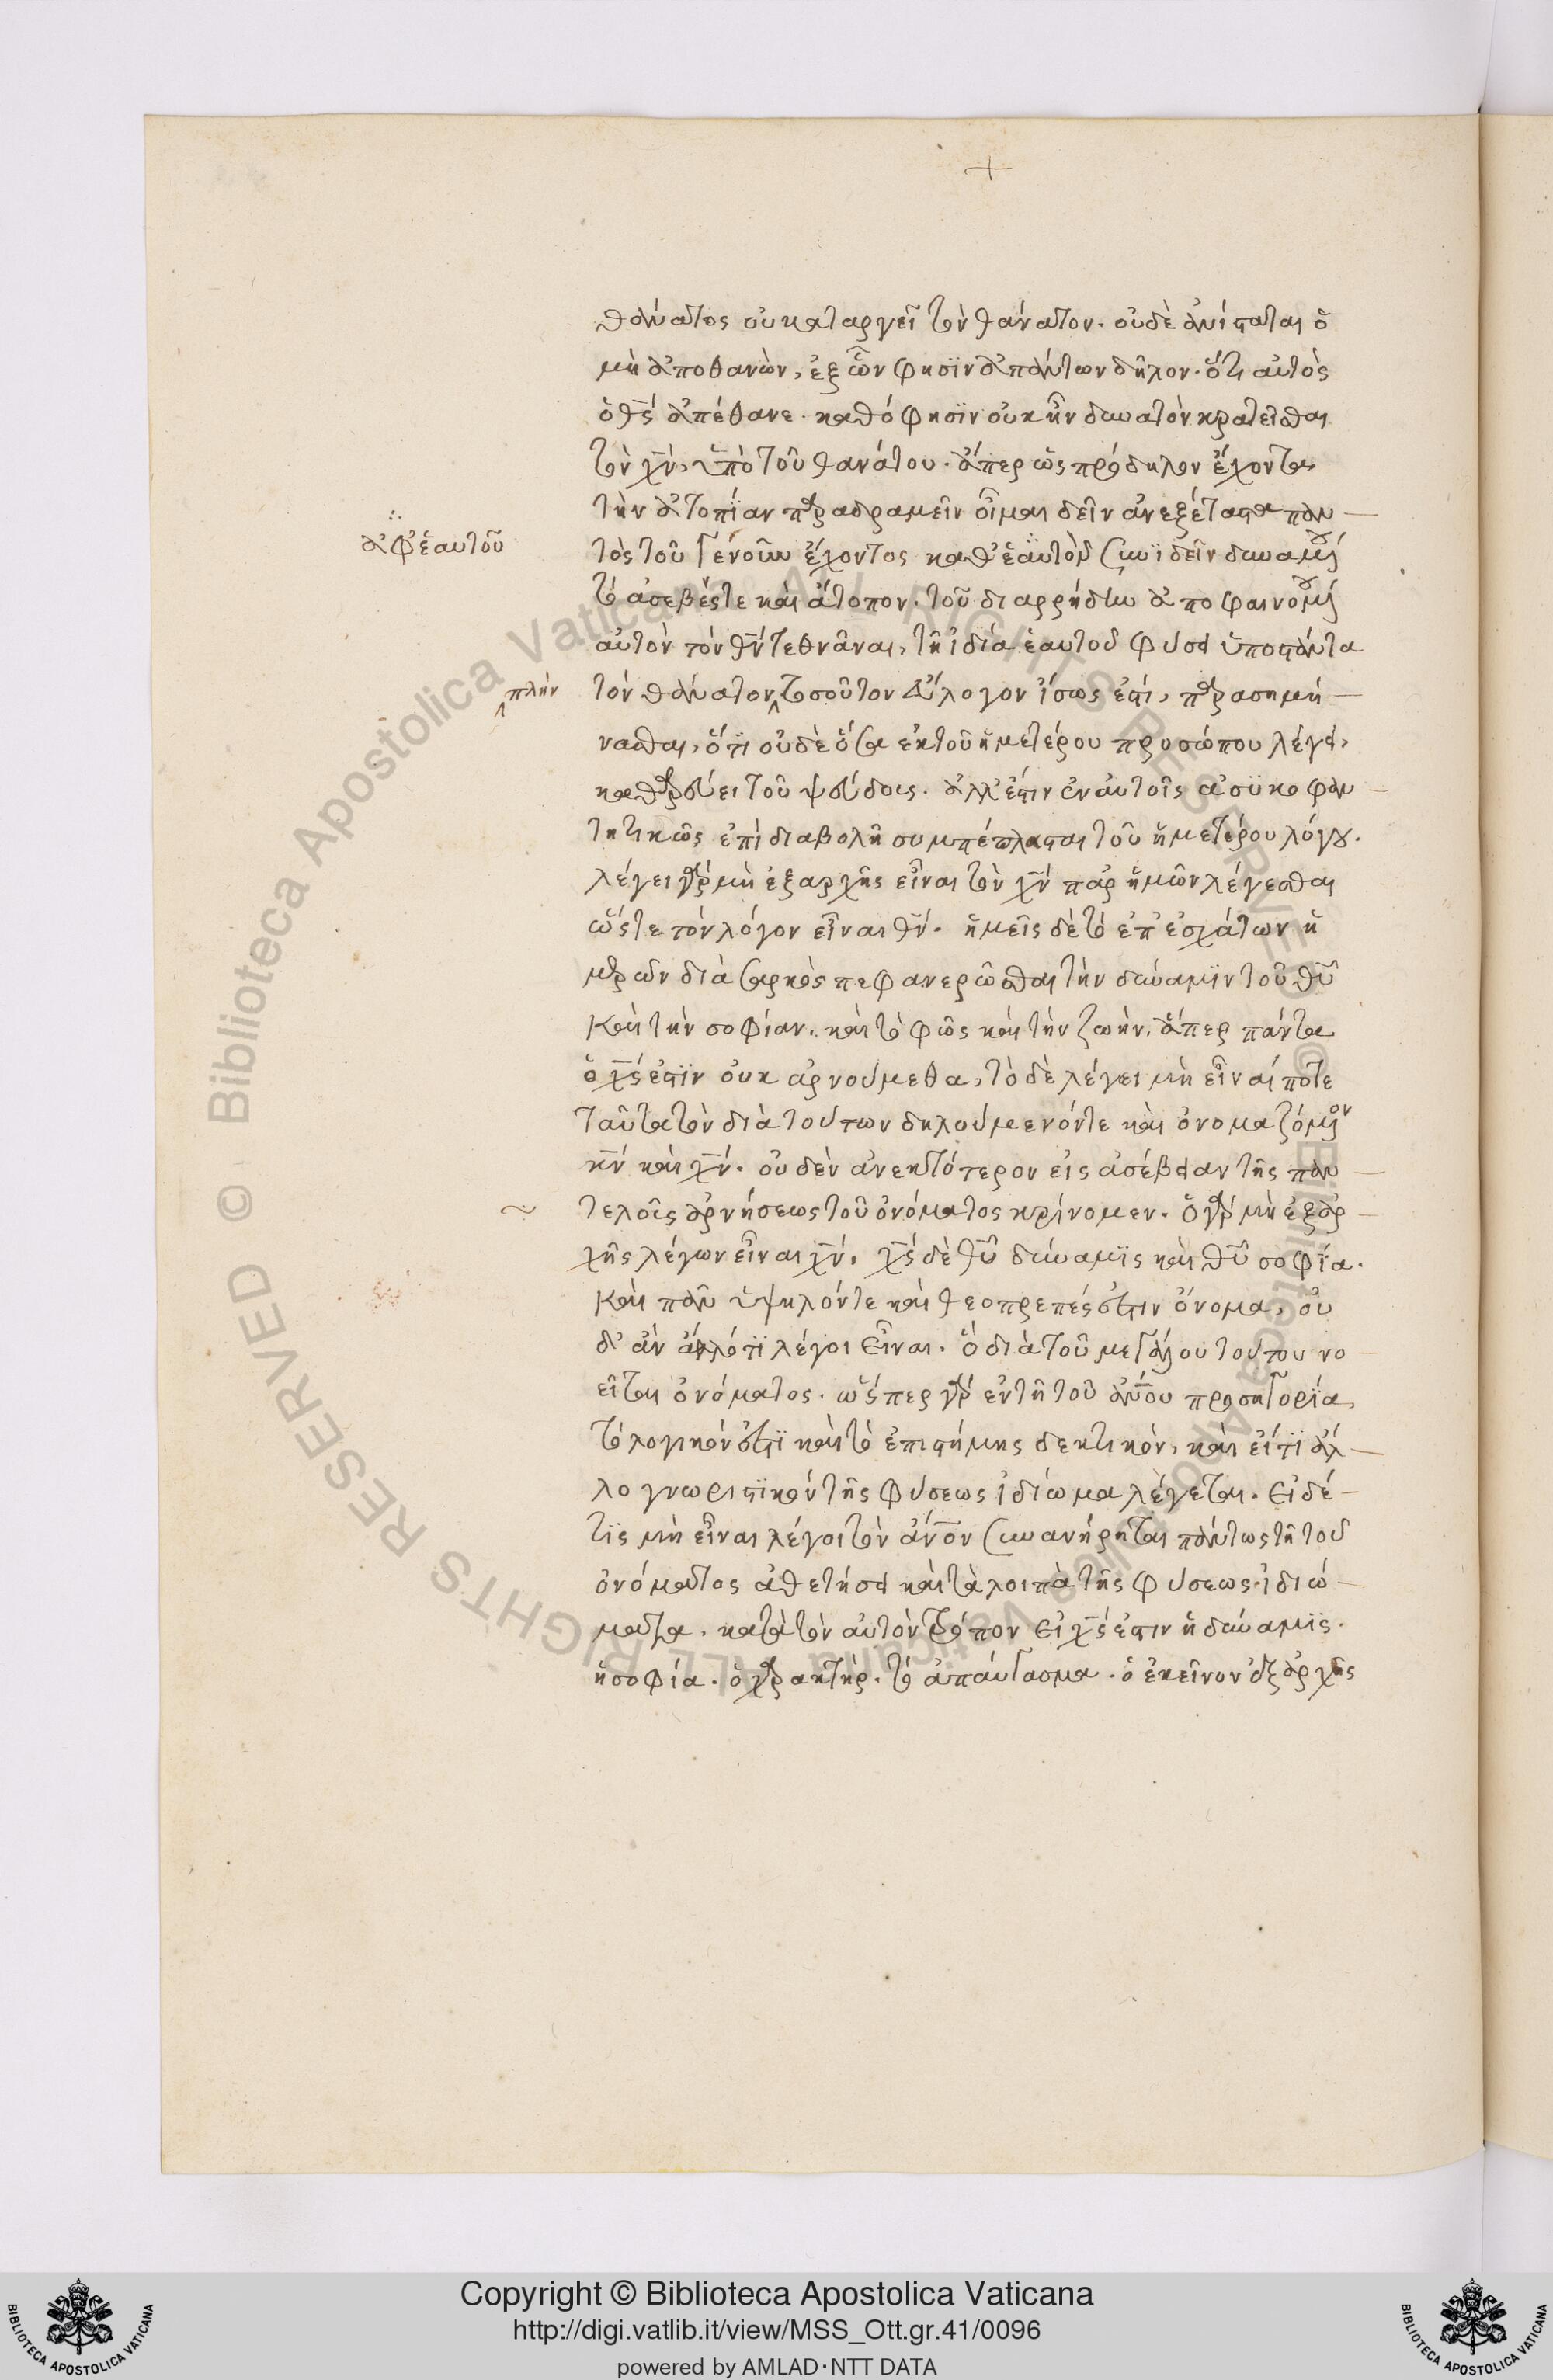 +
θάνατος οὐ καταργεῖ τὸν θάνατον. οὐδὲ ἀνίσταται ὁ
μὴ ἀποθανὼν, ἐξ ὧν φησὶν ἁπάντων δῆλον. ὅτι αὐτὸς
ὁ θς ἀπέθανε. καθό φησιν οὐκ ἦν δυνατὸν κρατεῖσθαι
τὸν χν, ὑπὸ τοῦ θανάτου. ἅπερ ὡς πρόδηλον ἔχοντα
τὴν ἀτοπίαν παραδραμεῖν οἶμαι δεῖν ἀνεξέταστα παν
ἀφ' ἑαυτοῦ
τὸς τοῦ γε νοῦν ἔχοντος καθ' ἑαυτὸν συνιδεῖν δυναμένου
τό ἀσεβές τε καὶ ἄτοπον. τοῦ διαρρήδην ἀποφαινομένου
αὐτὸν τὸν θν τεθνᾶναι, τῇ ἰδία ἑαυτοῦ φύσει ὑποστάντα
πλὴν
τὸν θάνατον τοσοῦτον εὔλογον ἴσως ἐστί, παρασημή
νασθαι, ὅτι οὐδὲ ὅσα ἐκ τοῦ ἡμετέρου προσώπου λέγει,
καθαρεύει τοῦ ψεύδους. ἀλλ' ἔστιν ἐν αὐτοῖς ἃ συκοφαν
τητικῶς ἐπὶ διαβολῇ συμπέπλασται τοῦ ἡμετέρου λόγου.
λέγει γάρ μὴ ἐξ αρχῆς εἶναι τὸν χν παρ ἡμῶν λέγεσθαι
ὥστε τὸν λόγον εἶναι θν. ἡμεῖς δὲ τό ἐπ' ἐσχάτων ἡ
μερῶν διὰ σαρκὸς πεφανερῶσθαι τὴν δύναμιν τοῦ θυ
καὶ τὴν σοφίαν. καὶ τὸ φῶς καὶ τὴν ζωὴν. ἅπερ πάντα
ὁ χς ἐστιν οὐκ αρνούμεθα, τὸ δὲ λέγει μὴ εἶναί ποτε
ταῦτα τὸν διὰ τούτων δηλούμενόν τε καὶ ὀνομαζόμενον
κν καὶ χν. οὐδὲν ἀνεκτότερον εἰς ἀσέβειαν τῆς παν
τελοῦς ἀρνήσεως τοῦ ὀνόματος κρίνομεν. ὁ γάρ μὴ ἐξ ἀρ
χῆς λέγων εἶναι χν. χς δὲ θυ δύναμις καὶ θυ σοφία.
καὶ πᾶν ὑψηλόν τε καὶ θεοπρεπές ἐστιν ὄνομα, οὐ
δ' ἂν ἄλλό τι λέγοι εἶναι. ὃ διὰ τοῦ μεγάλου τούτου νο
εῖται ὀνόματος. ὥσπερ γάρ ἐν τῇ τοῦ ἀνου προσηγορία,
τό λογικόν ἐστι καὶ τὸ ἐπιστήμης δεκτικὸν, καὶ εἴ τι ἄλ
λο γνωριστικόν τῆς φύσεως ἰδίωμα λέγεται. εἰ δέ
τις μὴ εἶναι λέγοι τὸν ἄνον συνανήρηται πάντως τῇ τοῦ
ὀνόματος ἀθετήσει καὶ τὰ λοιπὰ τῆς φύσεως ἰδιώ
ματα. κατὰ τὸν αὐτὸν τρόπον εἰ χς ἐστιν ἡ δύναμις.
ἡ σοφία. ὁ χαρακτὴρ. τό ἀπαύγασμα. ὁ ἐκεῖνον ἐξ ἀρχῆς
© Biblioteca Apostolica Vaticana ALL RIGHTS RESERVED © Biblioteca Apostolica Vaticana ALL RIGHTS RESERVED
Copyright © Biblioteca Apostolica Vaticana
http://digi.vatlib.it/view/MSS_Ott.gr.41/0096
powered by AMLAD·NTT DATA
BIBLIOTECA APOSTOLICA VATICANA
BIBLIOTECA APOSTOLICA VATICANA